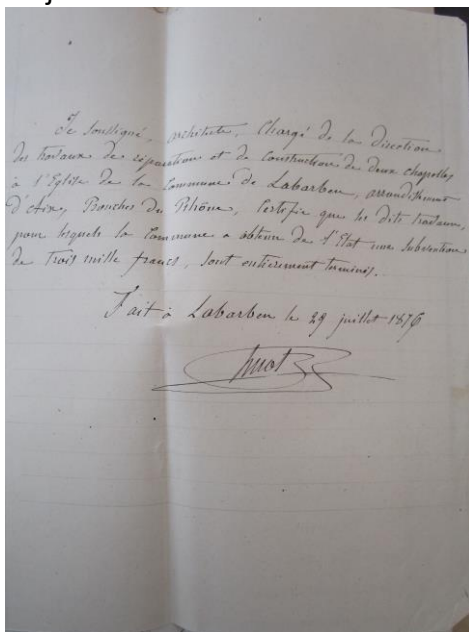 Je soussigné, architecte, chargé de la Direction
des travaux de réparation et de construction de deux chapelles
à l'Eglise de la Commune de Labarben, arrondissement
d'Aix, Bouches du Rhône, Certifie que les dits travaux,
pour lesquels la Commune a obtenu de l'Etat une subvention
de Trois mille francs, sont entièrement terminés.
Fait à Labarben le 29 juillet 1876